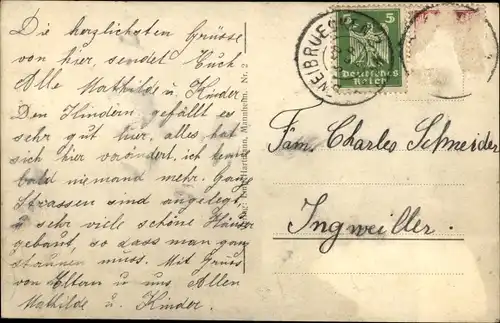 Die herzlichsten Grüsse
von hier, sendet Euch
Alle Mathilde u. Kinder
Den Kindern gefällt es
sehr gut hier, alles hat
sich hier verändert, ich kenne
bald niemand mehr. Ganze
Strassen sind angelegt
u sehr viele schöne Häuser
gebaut, so dass man ganz
staunen muss. Mit Gruss
von Eltern u uns Allen
Mathilde u. Kinder.
Hartmann, Mannheim. Nr. 2
5
Deutsches
Reich
ZWEIBRUECKEN
Fam. Charles Schneider
Ingweiller.